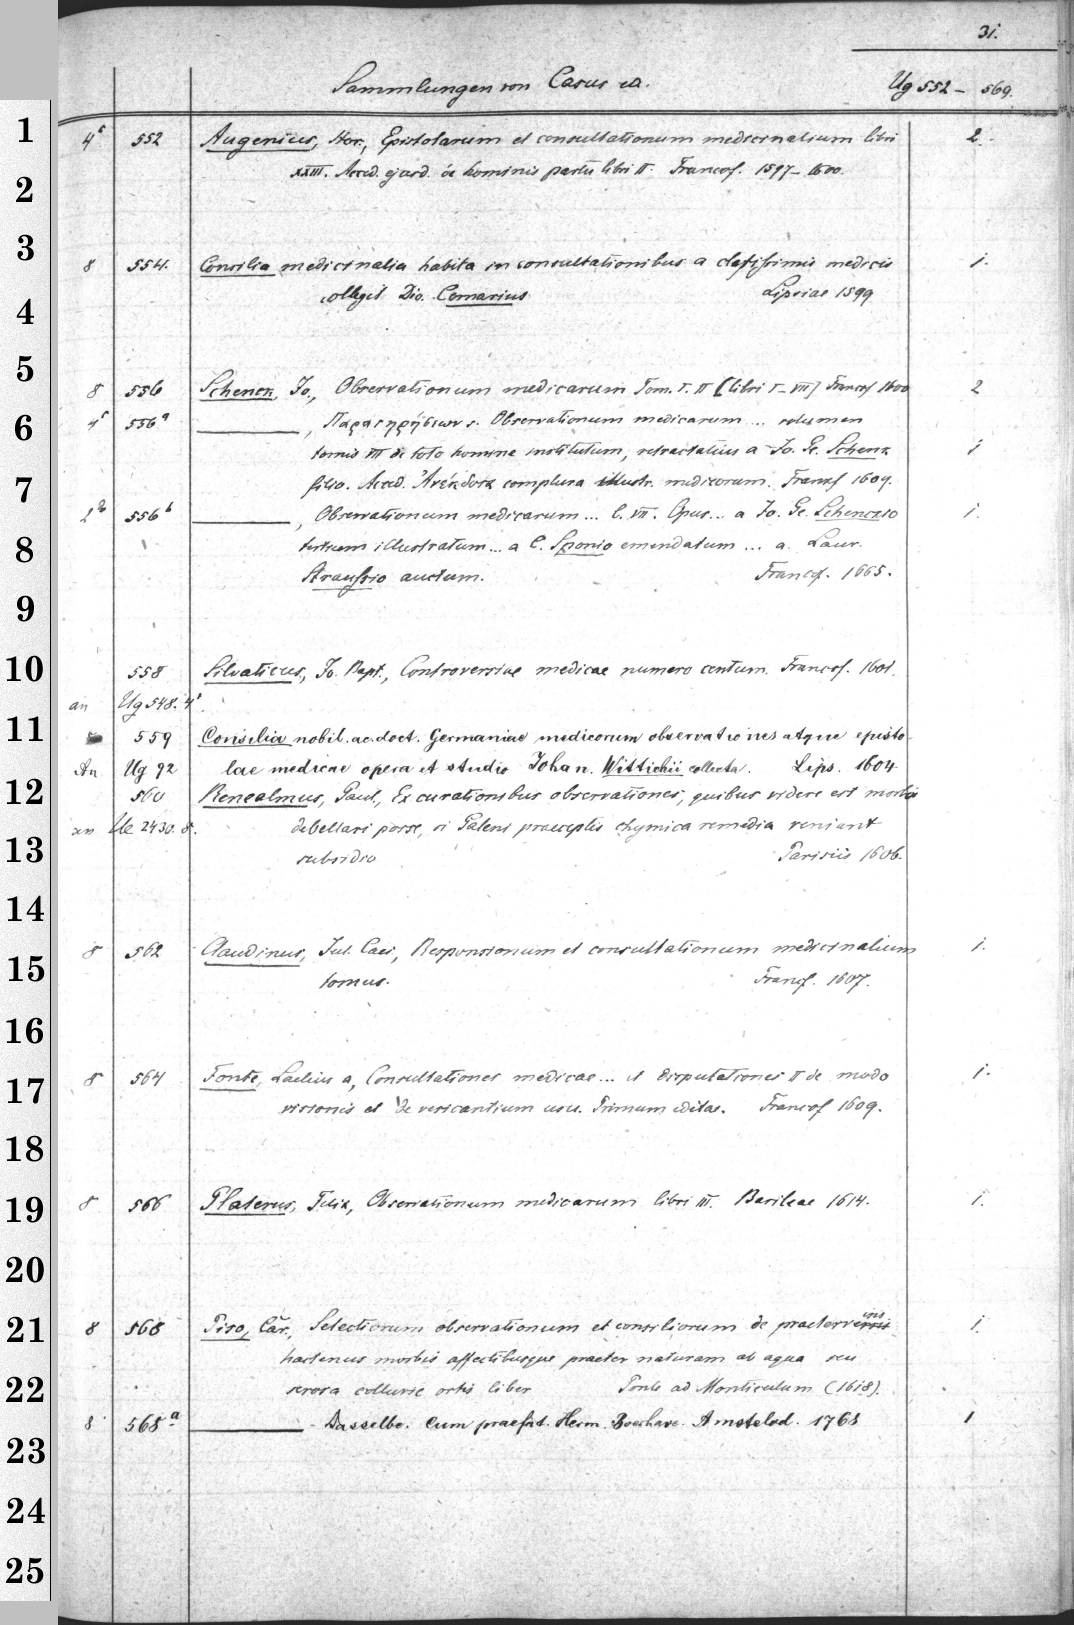 31.
Sammlungen von Casus etc. Ug 552 – 569.
1 4° 552 Augenius, Hor., Epistolarum et consultationum medicinalium libri 2.
2 XXIII. Acced. ejusd. de hominis partu libri II. Francof. 1597–1600.
3 8 554. Consilia medicinalia habita in consultationibus a clarissimis medicis 1.
4 collegit Dio. Cornarius Lipsiae 1599
5 8 556 Schenck, Jo., Observationum medicarum Tom. I. II [libri I–VII] Francof 1600 2
6 4° 556a ———, Παρατηρήσεων s. Observationum medicarum ... volumen
tomis VII de toto homine institutum, retractatius a Jo. Ge. Schenk 1
7 filio. Acced. Ἀνέκδοτα complura illustr. medicorum. Francf 1609.
2° 556b ———, Observationum medicarum ... l. VII. Opus ... a Jo. Ge. Schenckio 1.
8 tertium illustratum ... a C. Sponio emendatum ... a Laur.
Straussio auctum. Francof. 1665.
9
10 558 Silvaticus, Jo. Bapt., Controversiae medicae numero centum. Francof. 1601.
an Ug 548. 4°.
11 559 Consilia nobil. ac doct. Germaniae medicorum observationes atque episto-
An Ug 92 lae medicae opera et studio Johan. Wittichii collecta. Lips. 1604
12 560 Renealmus, Paul., Ex curationibus observationes, quibus videre est morbos
an Ue 2430. 8. debellari posse, si Galeni praeceptis chymica remedia veniant
13 subsidio Parisiis 1606.
14
8 562 Claudinus, Jul. Caes., Responsionum et consultationum medicinalium 1.
15 tomus. Francf. 1607.
16
17 8 564 Fonte, Laelius a, Consultationes medicae ... et disputationes II de modo 1.
visionis et de vesicantium usu. Primum editae. Francof 1609.
18
19 8 566 Platerus, Felix, Observationum medicarum libri III. Basileae 1614. 1.
20
21 8 568 Piso, Car., Selectiorum observationum et consiliorum de praetervisis 1.
hactenus morbis affectibusque praeter naturam ab aqua seu
22 serosa colluvie ortis liber Ponte ad Monticulum (1618).
8 568a ——— Dasselbe. Cum praefat. Herm. Boerhave. Amstelod. 1768 1
23
24
25